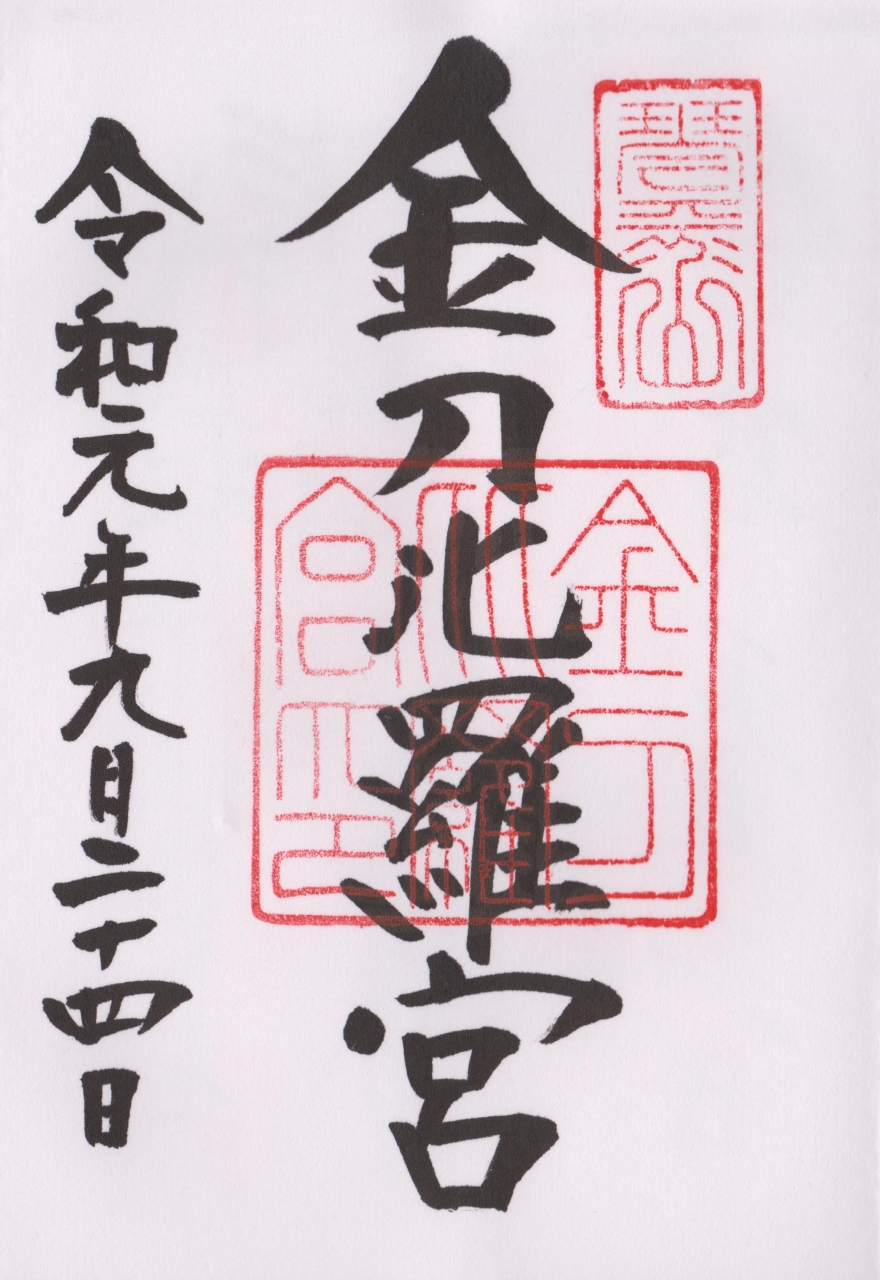 琴平山
金刀比羅宮
金刀比羅宮之印
令和元年九月二十四日